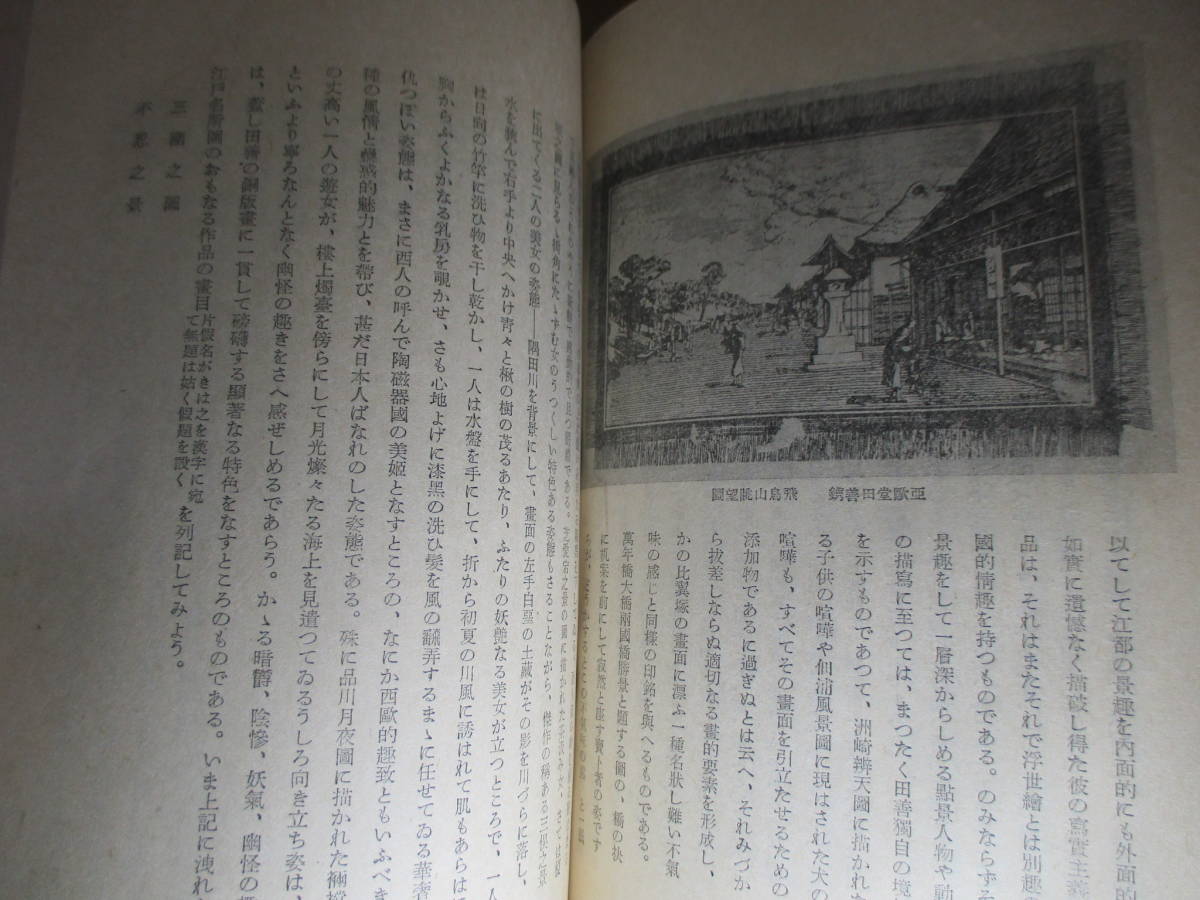 亞歐堂田善鐫　飛鳥山眺望圖
以てして江都の景趣を内面的にも外面的
如實に遺憾なく描破し得た彼の寫實主義
品は、それはまたそれで浮世繪とは別趣の
國的情趣を持つものである。のみならずそ
景趣をして一層深からしめる點景人物や動
の描寫に至つては、まつたく田善獨自の境
を示すものであつて、洲崎辨天圖に描かれた
る子供の喧嘩や佃浦風景圖に現はされた犬の
喧嘩も、すべてその畫面を引立たせるための
添加物であるに過ぎぬとは云へ、それみづか
ら拔差しならぬ適切なる畫的要素を形成し、
かの比翼塚の畫面に漂ふ一種名狀し難い不氣
味の感じと同樣の印銘を與へるものである。
萬年橋大橋兩國橋勝景と題する圖の、橋の袂
に机案を前にして寂然と座す賣卜者の姿です
に出てくる二人の美女の姿態――隅田川を背景にして、畫面の左手白堊の土藏がその影を川づらに落し、
水を挾んで右手より中央へかけ靑々と楸の樹の茂るあたり、ふたりの妖艶なる美女が立つところで、一人
は日向の竹竿に洗ひ物を干し乾かし、一人は水盤を手にして、折から初夏の川風に誘はれて肌もあらは
胸からふくよかなる乳房を覗かせ、さも心地よげに漆黑の洗ひ髮を風の飜弄するまゝに任せてゐる華奢
仇つぽい姿態は、まさに西人の呼んで陶磁器國の美姬となすところの、なにか西歐的趣致ともいふべき
種の風情と蠱惑的魅力とを帶び、甚だ日本人ばなれのした姿態である。殊に品川月夜圖に描かれた裲襠
の丈高い一人の遊女が、樓上燭臺を傍らにして月光燦々たる海上を見遣つてゐるうしろ向き立ち姿は、
といふより寧ろなんとなく幽怪の趣きをさへ感ぜしめるであらう。かゝる暗欝、陰慘、妖氣、幽怪の趣
は、蓋し田善の銅版畫に一貫して磅礴する顯著なる特色をなすところのものである。いま上記に洩れ
江戸名所圖のおもなる作品の畫目片假名がきは之を漢字に宛て無題は姑く假題を設くを列記してみよう。
三圍之圖
不忍之景